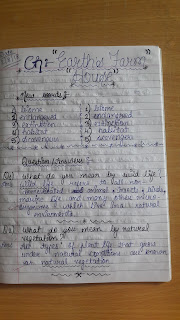 Ch:- "Earth's Farm
House"
New words :-
1) biome 1) biome
2) endangered 2) endangered
3) extinction 3)
4) habitat 4) habitat
5) scavengers 5) scavengers
Question/Answers :-
Q1) What do you mean by wild life?
wild life refers to all non-
domesticated animals, insects, birds,
marine life and many other micro-
organisms which live in natural
environments.
Q2) What do you mean by natural
vegetation?
All types of plant life that grows
under natural conditions are known
as natural vegetation.